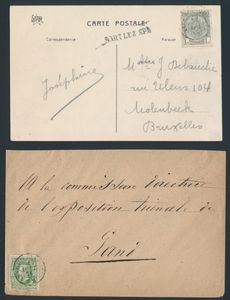 CARTE POSTALE
Correspondance
SART LEZ SPA
Joséphine
J Debauche
rue Ulens 104
Molenbeek
Bruxelles
A la commission directrice
de l'exposition triennale de
Gand